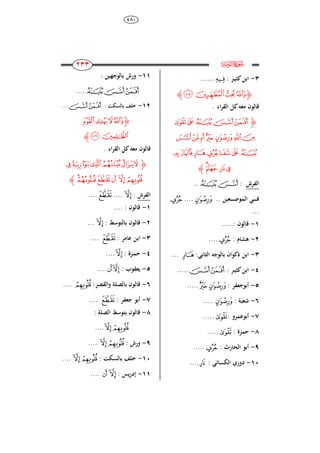 ٤٨٠
٢٣٣
٣- ابن كثير : فِيـهِۦ ......
﴿ وَٱللَّهُ يُحِبُّ ٱلْمُطَّهِّرِينَ ١٠٨ ﴾
قالون معه كل القراء .
﴿ أَفَمَنْ أَسَّسَ بُنْيَـٰنَهُۥ عَلَىٰ تَقْوَىٰ
مِنَ ٱللَّهِ وَرِضْوَٰنٍ خَيْرٌ أَم مَّنْ أَسَّسَ
بُنْيَـٰنَهُۥ عَلَىٰ شَفَا جُرُفٍ هَارٍ فَٱنْهَارَ بِهِۦ
فِى نَارِ جَهَنَّمَ ﴾
الفرش : أَسَّسَ بُنْيَـٰنَهُۥ ..
فـي الموضـعين .. وَرِضْوَٰنٍ .... جُرُفٍ
...
١- قالون :.....
٢- هشام : جُرُفٍ ....
٣- ابن ذكوان بالوجه الثاني: هَارٍ ...
٤- ابن كثير : أَفَمَنْ أَسَّسَ .....
٥- أبوجعفر : وَرِضْوَٰنٍ خَيْرٌ .....
٦- شعبة : وَرِضْوَٰنٍ .....
٧- أبوعمرو : تَقْوَىٰ .....
٨- حمزة : تَقْوَىٰ .....
٩- أبو الحارث : جُرُفٍ ....
١٠- دوري الكسائي : نَارِ ....
١١- ورش بالوجهين :
أَفَمَنْ أَسَّسَ بُنْيَـٰنَهُۥ ....
١٢- خلف بالسكت : أَفَمَنْ أَسَّسَ ...
﴿ وَٱللَّهُ لَا يَهْدِى ٱلْقَوْمَ
ٱلظَّـٰلِمِينَ ١٠٩ ﴾
قالون معه كل القراء .
﴿ لَا يَزَالُ بُنْيَـٰنُهُمُ ٱلَّذِى بَنَوْا۟ رِيبَةً فِى
قُلُوبِهِمْ إِلَّآ أَن تَقَطَّعَ قُلُوبُهُمْ ﴾
الفرش : إِلَّآ .... تَقَطَّعَ ....
١- قالون : ....
٢- قالون بالتوسط : إِلَّآ ...
٣- ابن عامر : تَقَطَّعَ ....
٤- حمزة : إِلَّآ ....
٥- يعقوب : إِلَّآ أَن ....
٦- قالون بالصلة والقصر: قُلُوبِهِمْ ....
٧- أبو جعفر : تَقَطَّعَ ....
٨- قالون بتوسط الصلة :
قُلُوبِهِمْ إِلَّآ ....
٩- ورش : قُلُوبِهِمْ إِلَّآ ....
١٠- خلف بالسكت : قُلُوبِهِمْ إِلَّآ ....
١١- إدريس : إِلَّآ أَن ....